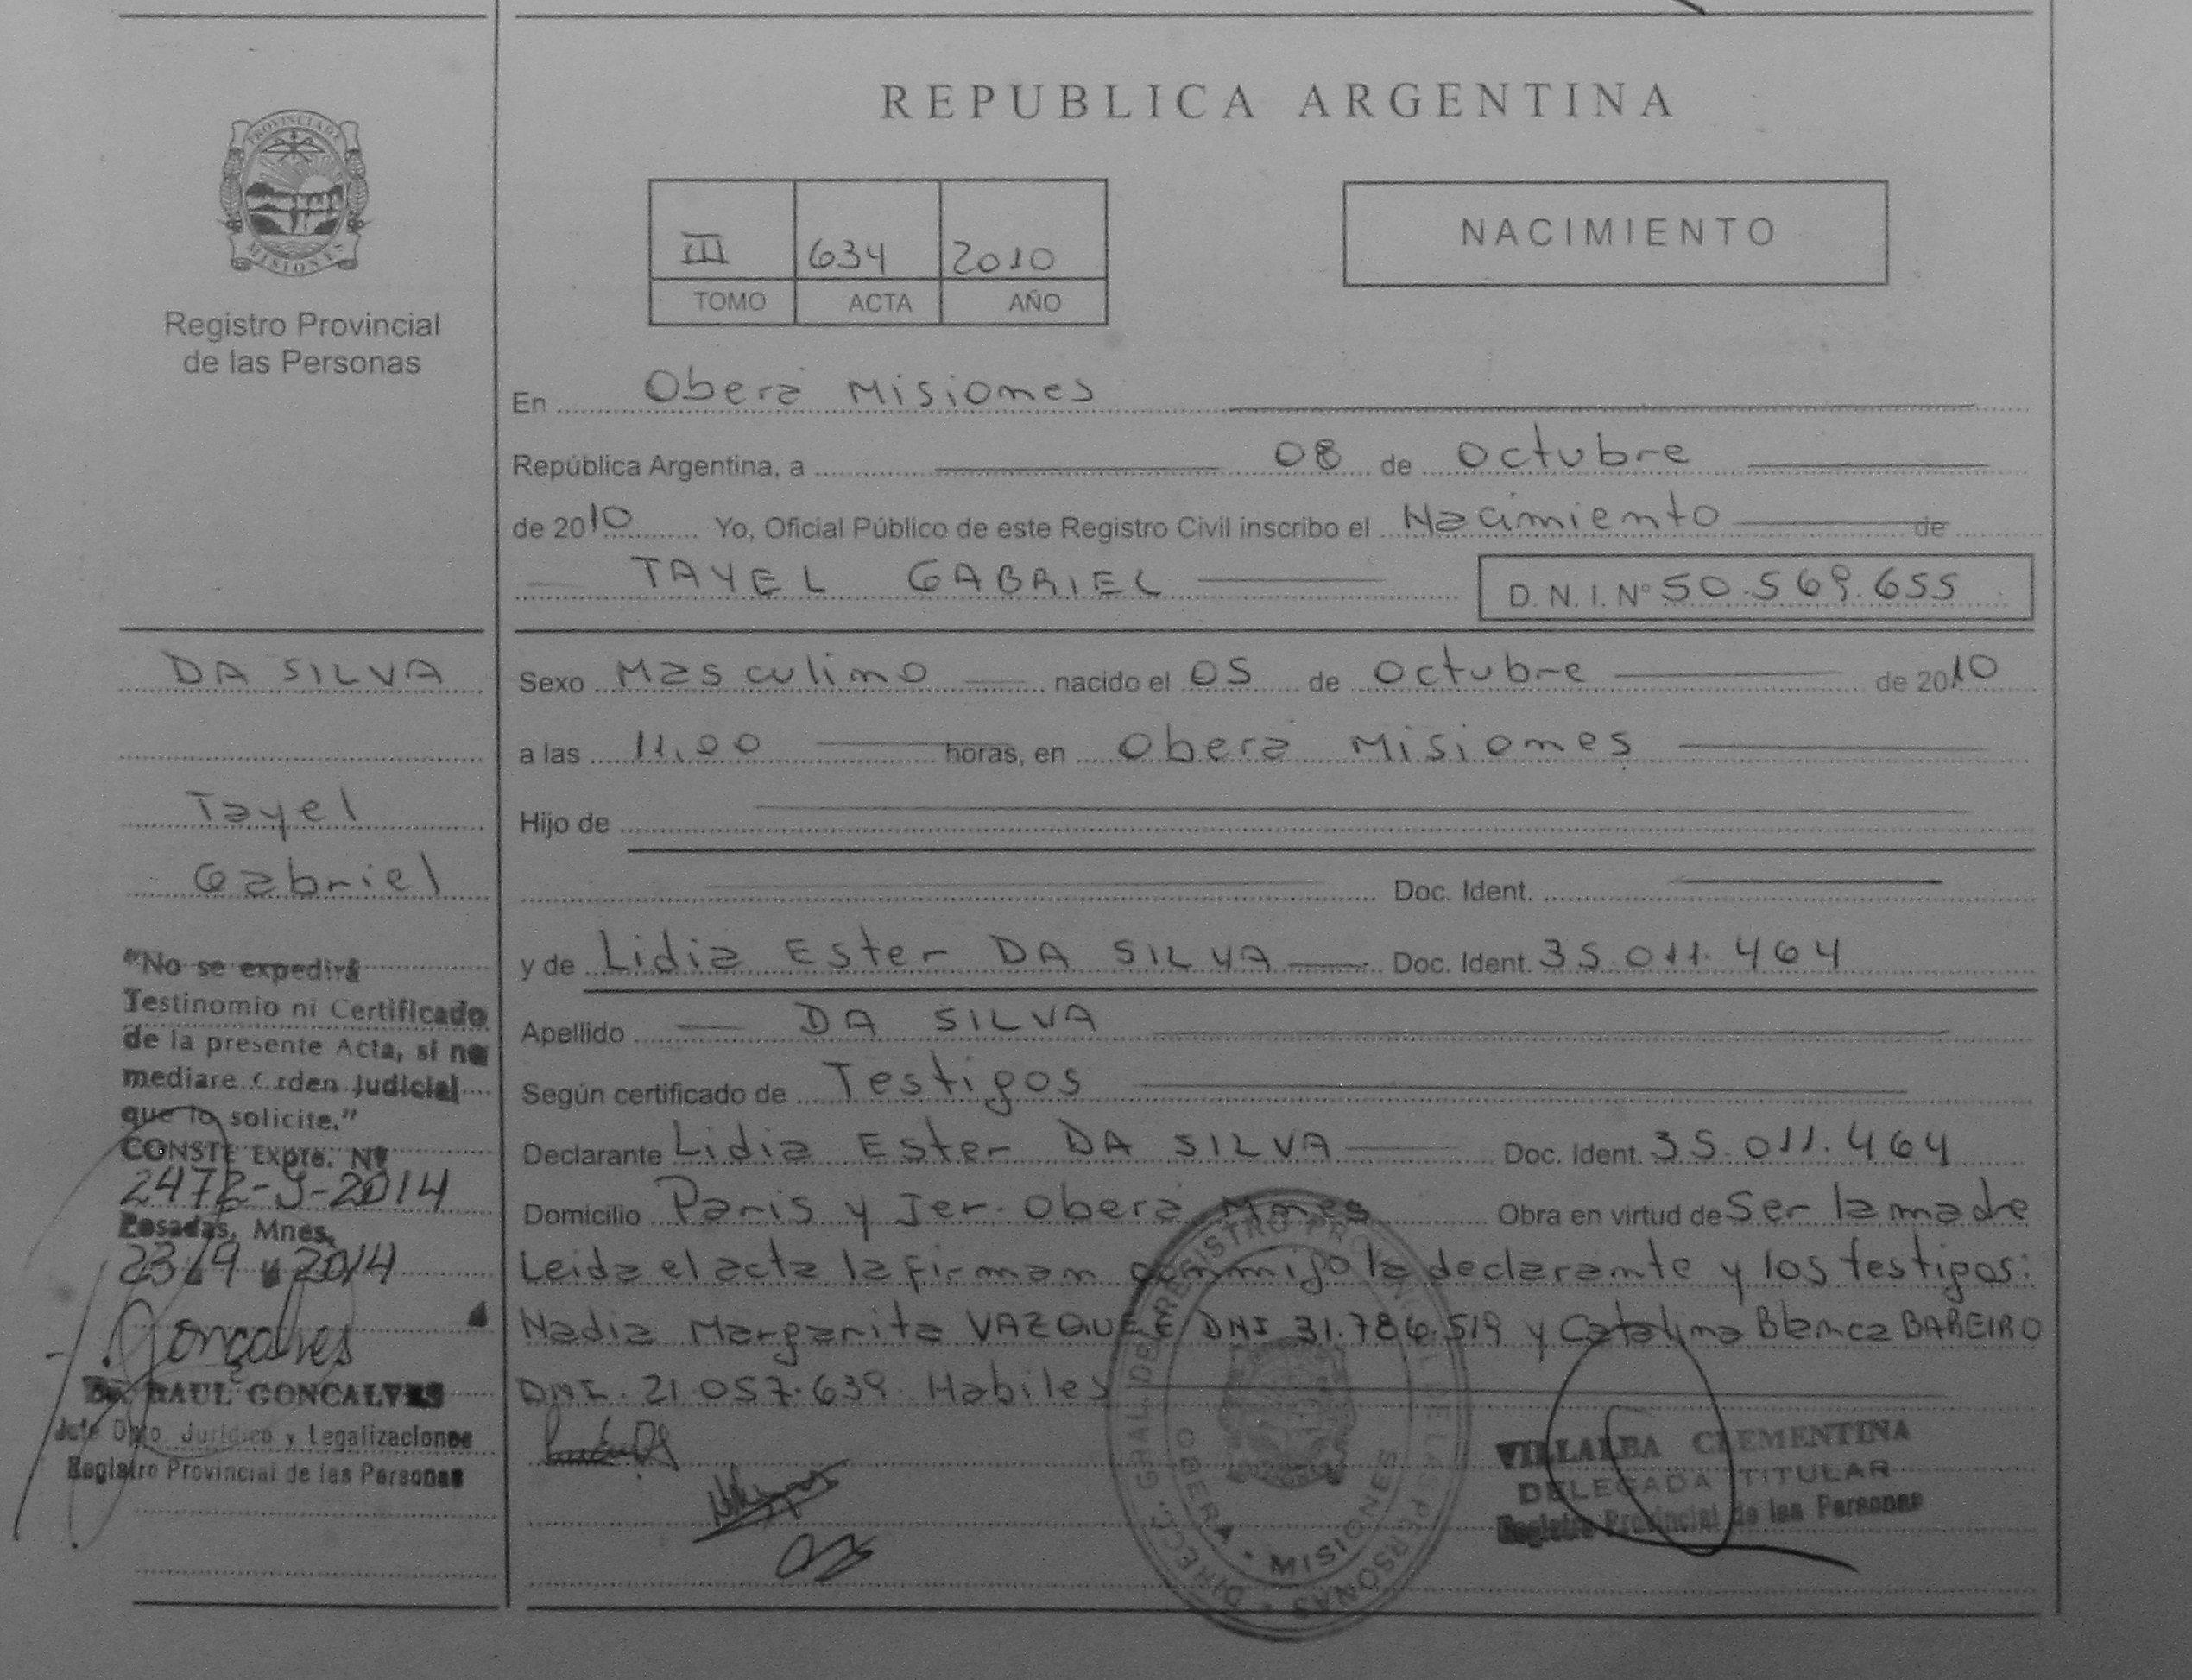 REPUBLICA ARGENTINA
PROVINCIA DE
MISIONES
Registro Provincial
de las Personas
III 634 2010
TOMO ACTA AÑO
NACIMIENTO
En Oberá Misiones
República Argentina, a 08 de octubre
de 2010 Yo, Oficial Público de este Registro Civil inscribo el Nacimiento de
TAYEL GABRIEL D. N. I. Nº 50.569.655
DA SILVA
Tayel
Gabriel
Sexo Masculino nacido el 05 de octubre de 2010
a las 11.00 horas, en Oberá Misiones
Hijo de
Doc. Ident.
y de Lidia Ester DA SILVA Doc. Ident. 35.011.464
Apellido DA SILVA
Según certificado de Testigos
Declarante Lidia Ester DA SILVA Doc. Ident. 35.011.464
Domicilio Paris y Jer. Oberá Mnes Obra en virtud de Ser la madre
Leida el acta la firman conmigo la declarante y los testigos:
Nadia Margarita VAZQUEZ DNI 31.786.519 y Catalina Blanca BAREIRO
DNI. 21.057.639. Habiles
"No se expedirá
Testinomio ni Certificado
de la presente Acta, si no
mediare Orden Judicial
que lo solicite."
CONSTE Expte. Nº
2472-9-2014
Posadas, Mnes,
23 9 2014
Gonçalves
Dr. RAUL GONCALVES
Jefe Dpto. Jurídico y Legalizaciones
Registro Provincial de las Personas
DIRECC. GRAL. DE REGISTRO PROVINCIAL DE LAS PERSONAS
OBERA • MISIONES
VILLALBA CLEMENTINA
DELEGADA TITULAR
Registro Provincial de las Personas